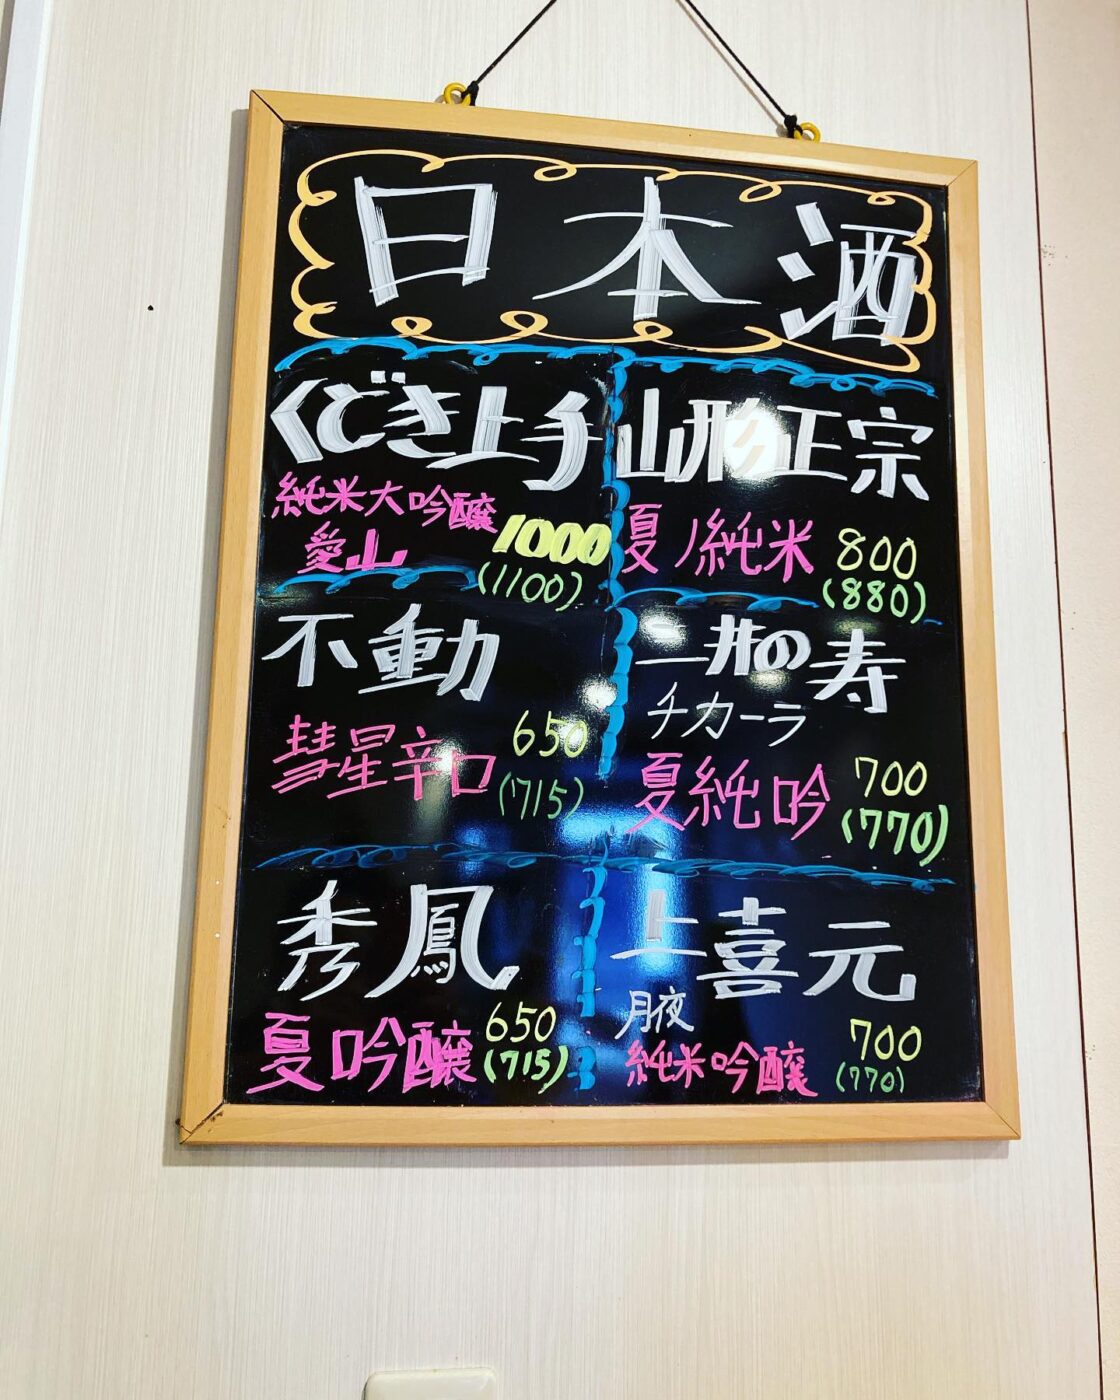 日本酒
くどき上手
純米大吟醸
愛山
1000
(1100)
山形正宗
夏ノ純米
800
(880)
不動
彗星辛口
650
(715)
三井の寿
チカーラ
夏純吟
700
(770)
秀鳳
夏吟醸
650
(715)
上喜元
月夜
純米吟醸
700
(770)